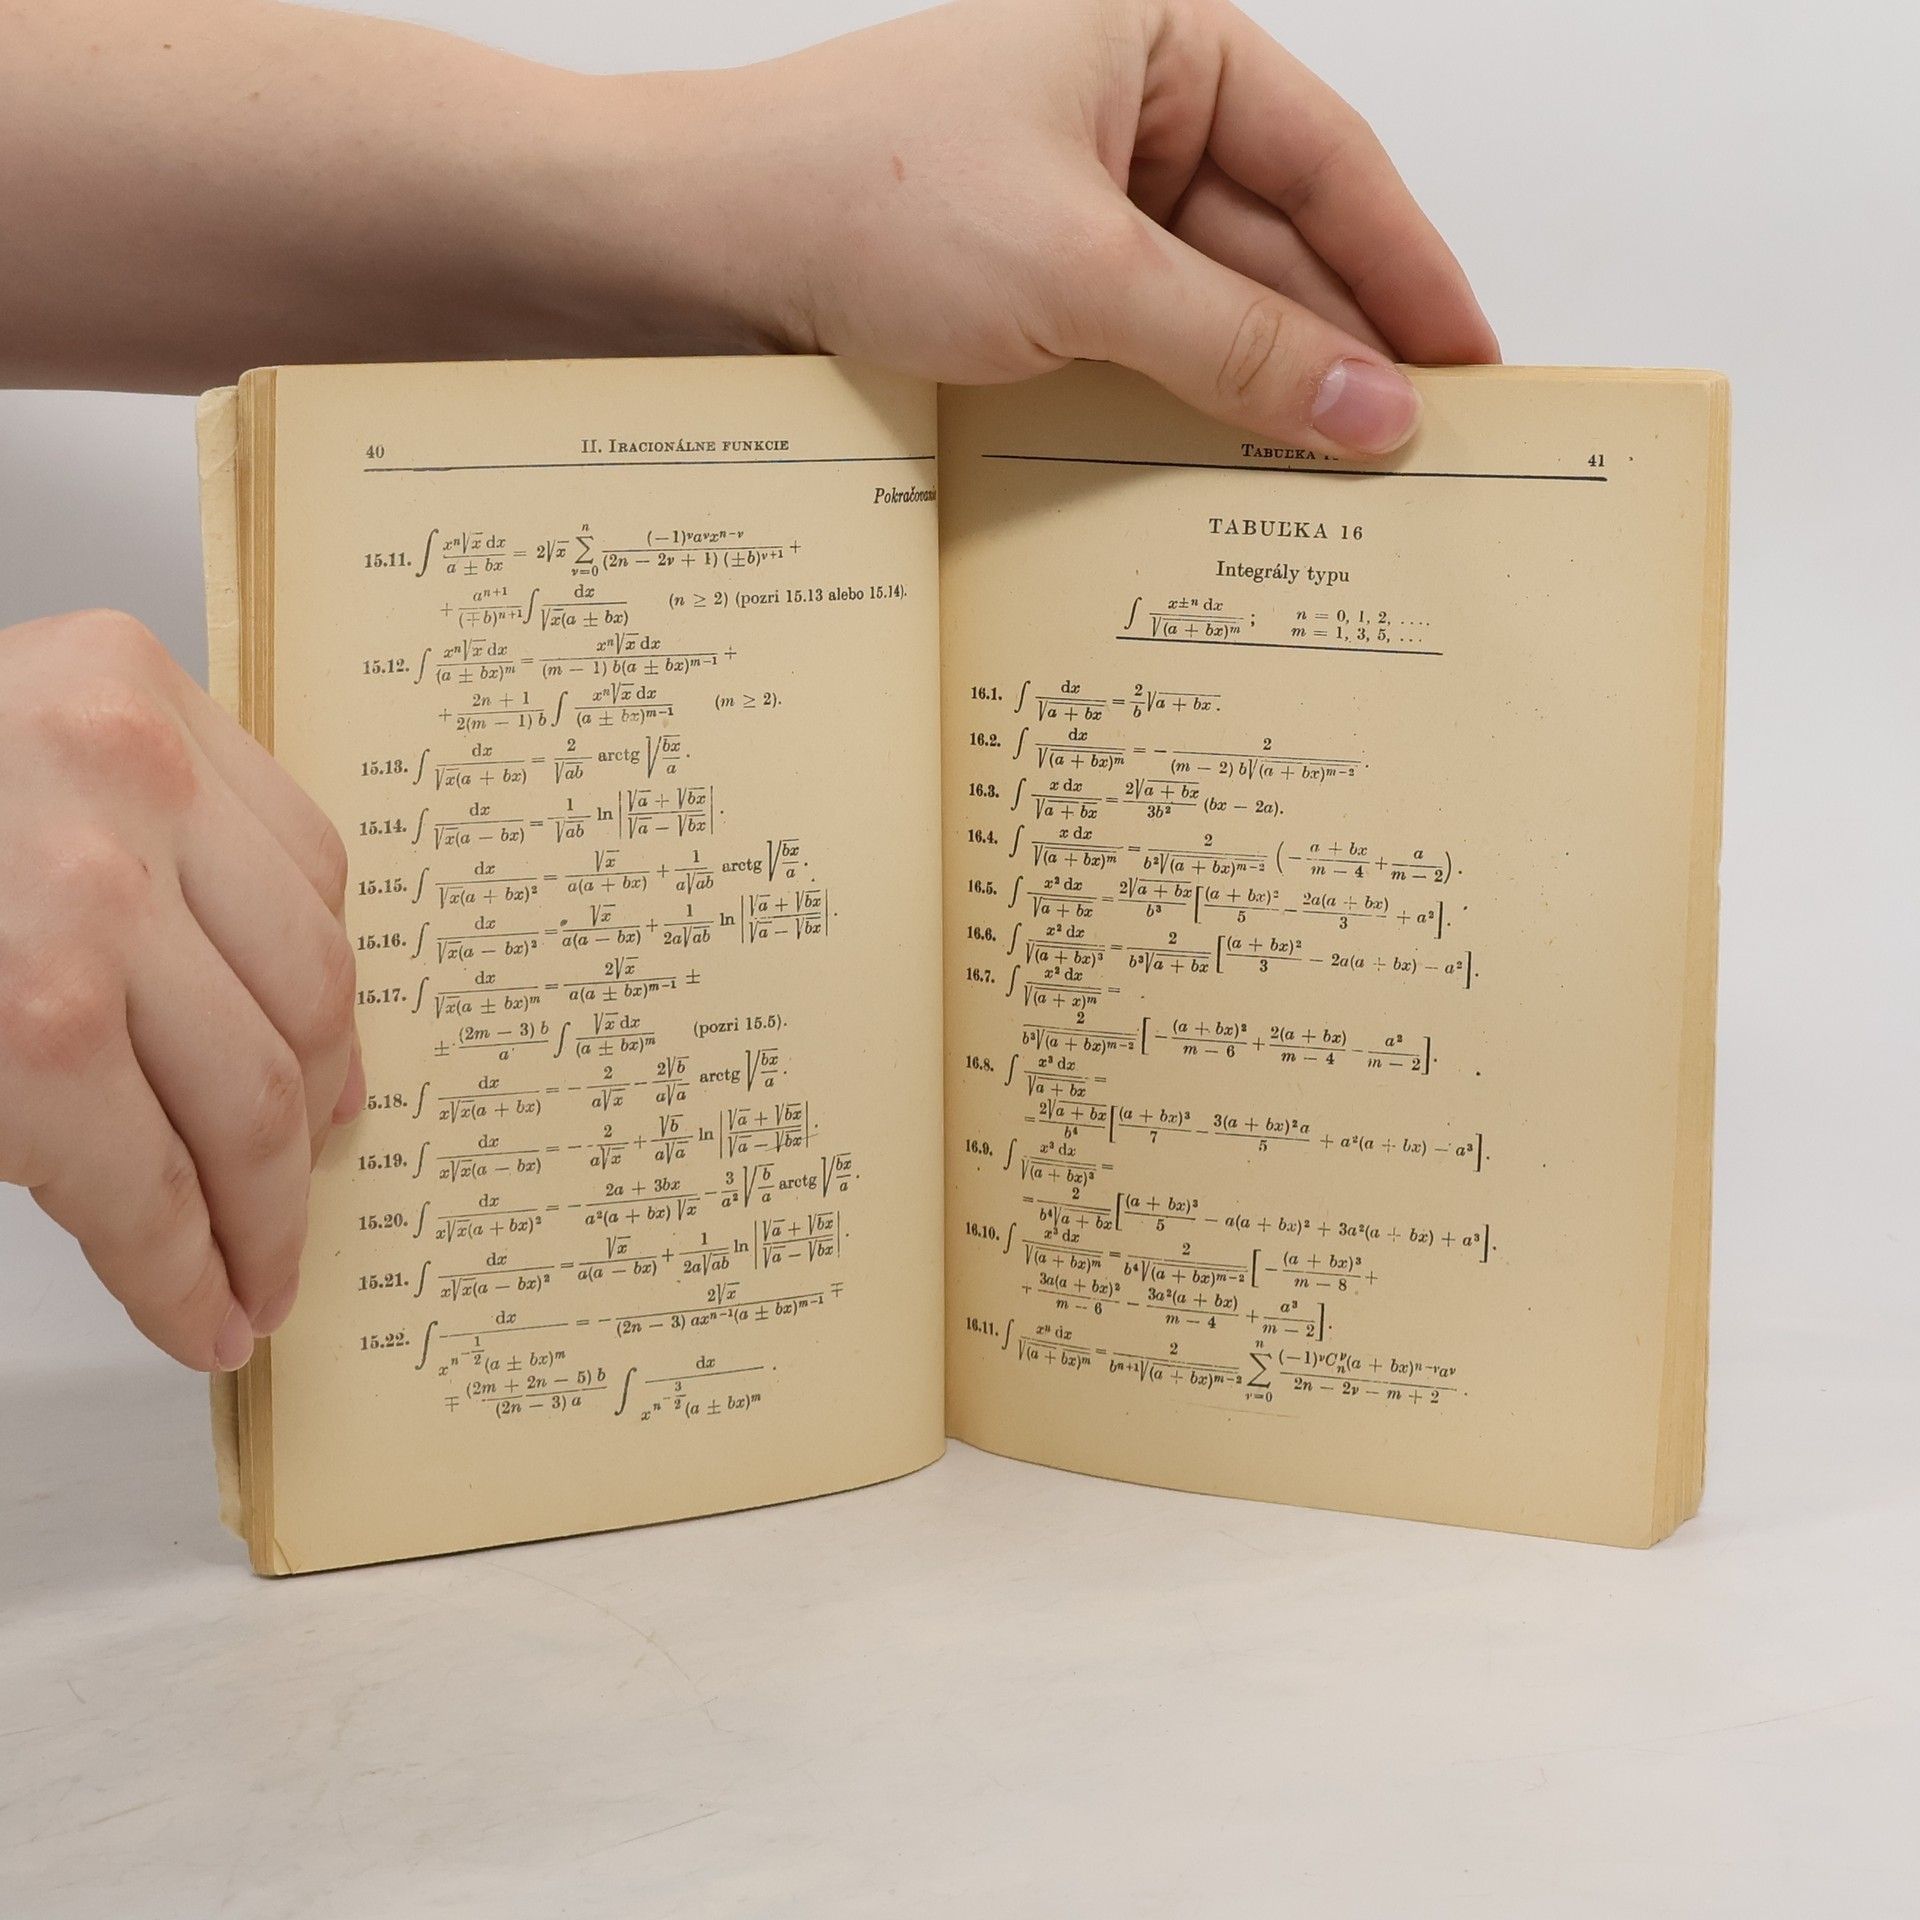 40 II. IRACIONÁLNE FUNKCIE
Pokračovanie
15.11. ∫ xⁿ√x dx / (a ± bx) = 2√x ∑_{ν=0}^{n} (−1)^ν a^ν x^{n−ν} / ((2n − 2ν + 1) (±b)^{ν+1}) +
+ a^{n+1} / (∓b)^{n+1} ∫ dx / (√x(a ± bx)) (n ≥ 2) (pozri 15.13 alebo 15.14).
15.12. ∫ xⁿ√x dx / (a ± bx)^m = xⁿ√x dx / ((m − 1) b(a ± bx)^{m−1}) +
+ (2n + 1) / (2(m − 1) b) ∫ xⁿ√x dx / (a ± bx)^{m−1} (m ≥ 2).
15.13. ∫ dx / (√x(a + bx)) = 2/√ab arctg √(bx/a).
15.14. ∫ dx / (√x(a − bx)) = 1/√ab ln |(√a + √bx) / (√a − √bx)|.
15.15. ∫ dx / (√x(a + bx)²) = √x / (a(a + bx)) + 1/(a√ab) arctg √(bx/a).
15.16. ∫ dx / (√x(a − bx)²) = √x / (a(a − bx)) + 1/(2a√ab) ln |(√a + √bx) / (√a − √bx)|.
15.17. ∫ dx / (√x(a ± bx)^m) = 2√x / (a(a ± bx)^{m−1}) ±
± (2m − 3) b / a ∫ √x dx / (a ± bx)^m (pozri 15.5).
5.18. ∫ dx / (x√x(a + bx)) = − 2/(a√x) − 2√b/(a√a) arctg √(bx/a).
15.19. ∫ dx / (x√x(a − bx)) = − 2/(a√x) + √b/(a√a) ln |(√a + √bx) / (√a − √bx)|.
15.20. ∫ dx / (x√x(a + bx)²) = − (2a + 3bx) / (a²(a + bx) √x) − 3/a² √(b/a) arctg √(bx/a).
15.21. ∫ dx / (x√x(a − bx)²) = √x / (a(a − bx)) + 1/(2a√ab) ln |(√a + √bx) / (√a − √bx)|.
15.22. ∫ dx / (x^{n−1/2}(a ± bx)^m) = − 2√x / ((2n − 3) ax^{n−1}(a ± bx)^{m−1}) ∓
∓ (2m + 2n − 5) b / ((2n − 3) a) ∫ dx / (x^{n−3/2}(a ± bx)^m).
TABUĽKA 41
TABUĽKA 16
Integrály typu
∫ x^{±n} dx / √(a + bx)^m ; n = 0, 1, 2, ....
m = 1, 3, 5, ...
16.1. ∫ dx / √(a + bx) = 2/b √(a + bx).
16.2. ∫ dx / √(a + bx)^m = − 2 / ((m − 2) b√(a + bx)^{m−2}).
16.3. ∫ x dx / √(a + bx) = 2√(a + bx) / 3b² (bx − 2a).
16.4. ∫ x dx / √(a + bx)^m = 2 / (b²√(a + bx)^{m−2}) (− (a + bx)/(m − 4) + a/(m − 2)).
16.5. ∫ x² dx / √(a + bx) = 2√(a + bx) / b³ [(a + bx)²/5 − 2a(a + bx)/3 + a²].
16.6. ∫ x² dx / √(a + bx)³ = 2 / (b³√(a + bx)) [(a + bx)²/3 − 2a(a + bx) − a²].
16.7. ∫ x² dx / √(a + x)^m =
2 / (b³√(a + bx)^{m−2}) [− (a + bx)²/(m − 6) + 2(a + bx)/(m − 4) − a²/(m − 2)].
16.8. ∫ x³ dx / √(a + bx) =
= 2√(a + bx) / b⁴ [(a + bx)³/7 − 3(a + bx)²a/5 + a²(a + bx) − a³].
16.9. ∫ x³ dx / √(a + bx)³ =
= 2 / (b⁴√(a + bx)) [(a + bx)³/5 − a(a + bx)² + 3a²(a + bx) + a³].
16.10. ∫ x³ dx / √(a + bx)^m = 2 / (b⁴√(a + bx)^{m−2}) [− (a + bx)³/(m − 8) +
+ 3a(a + bx)²/(m − 6) − 3a²(a + bx)/(m − 4) + a³/(m − 2)].
16.11. ∫ xⁿ dx / √(a + bx)^m = 2 / (b^{n+1}√(a + bx)^{m−2}) ∑_{ν=0}^{n} (−1)^ν C_n^ν (a + bx)^{n−ν} a^ν / (2n − 2ν − m + 2).